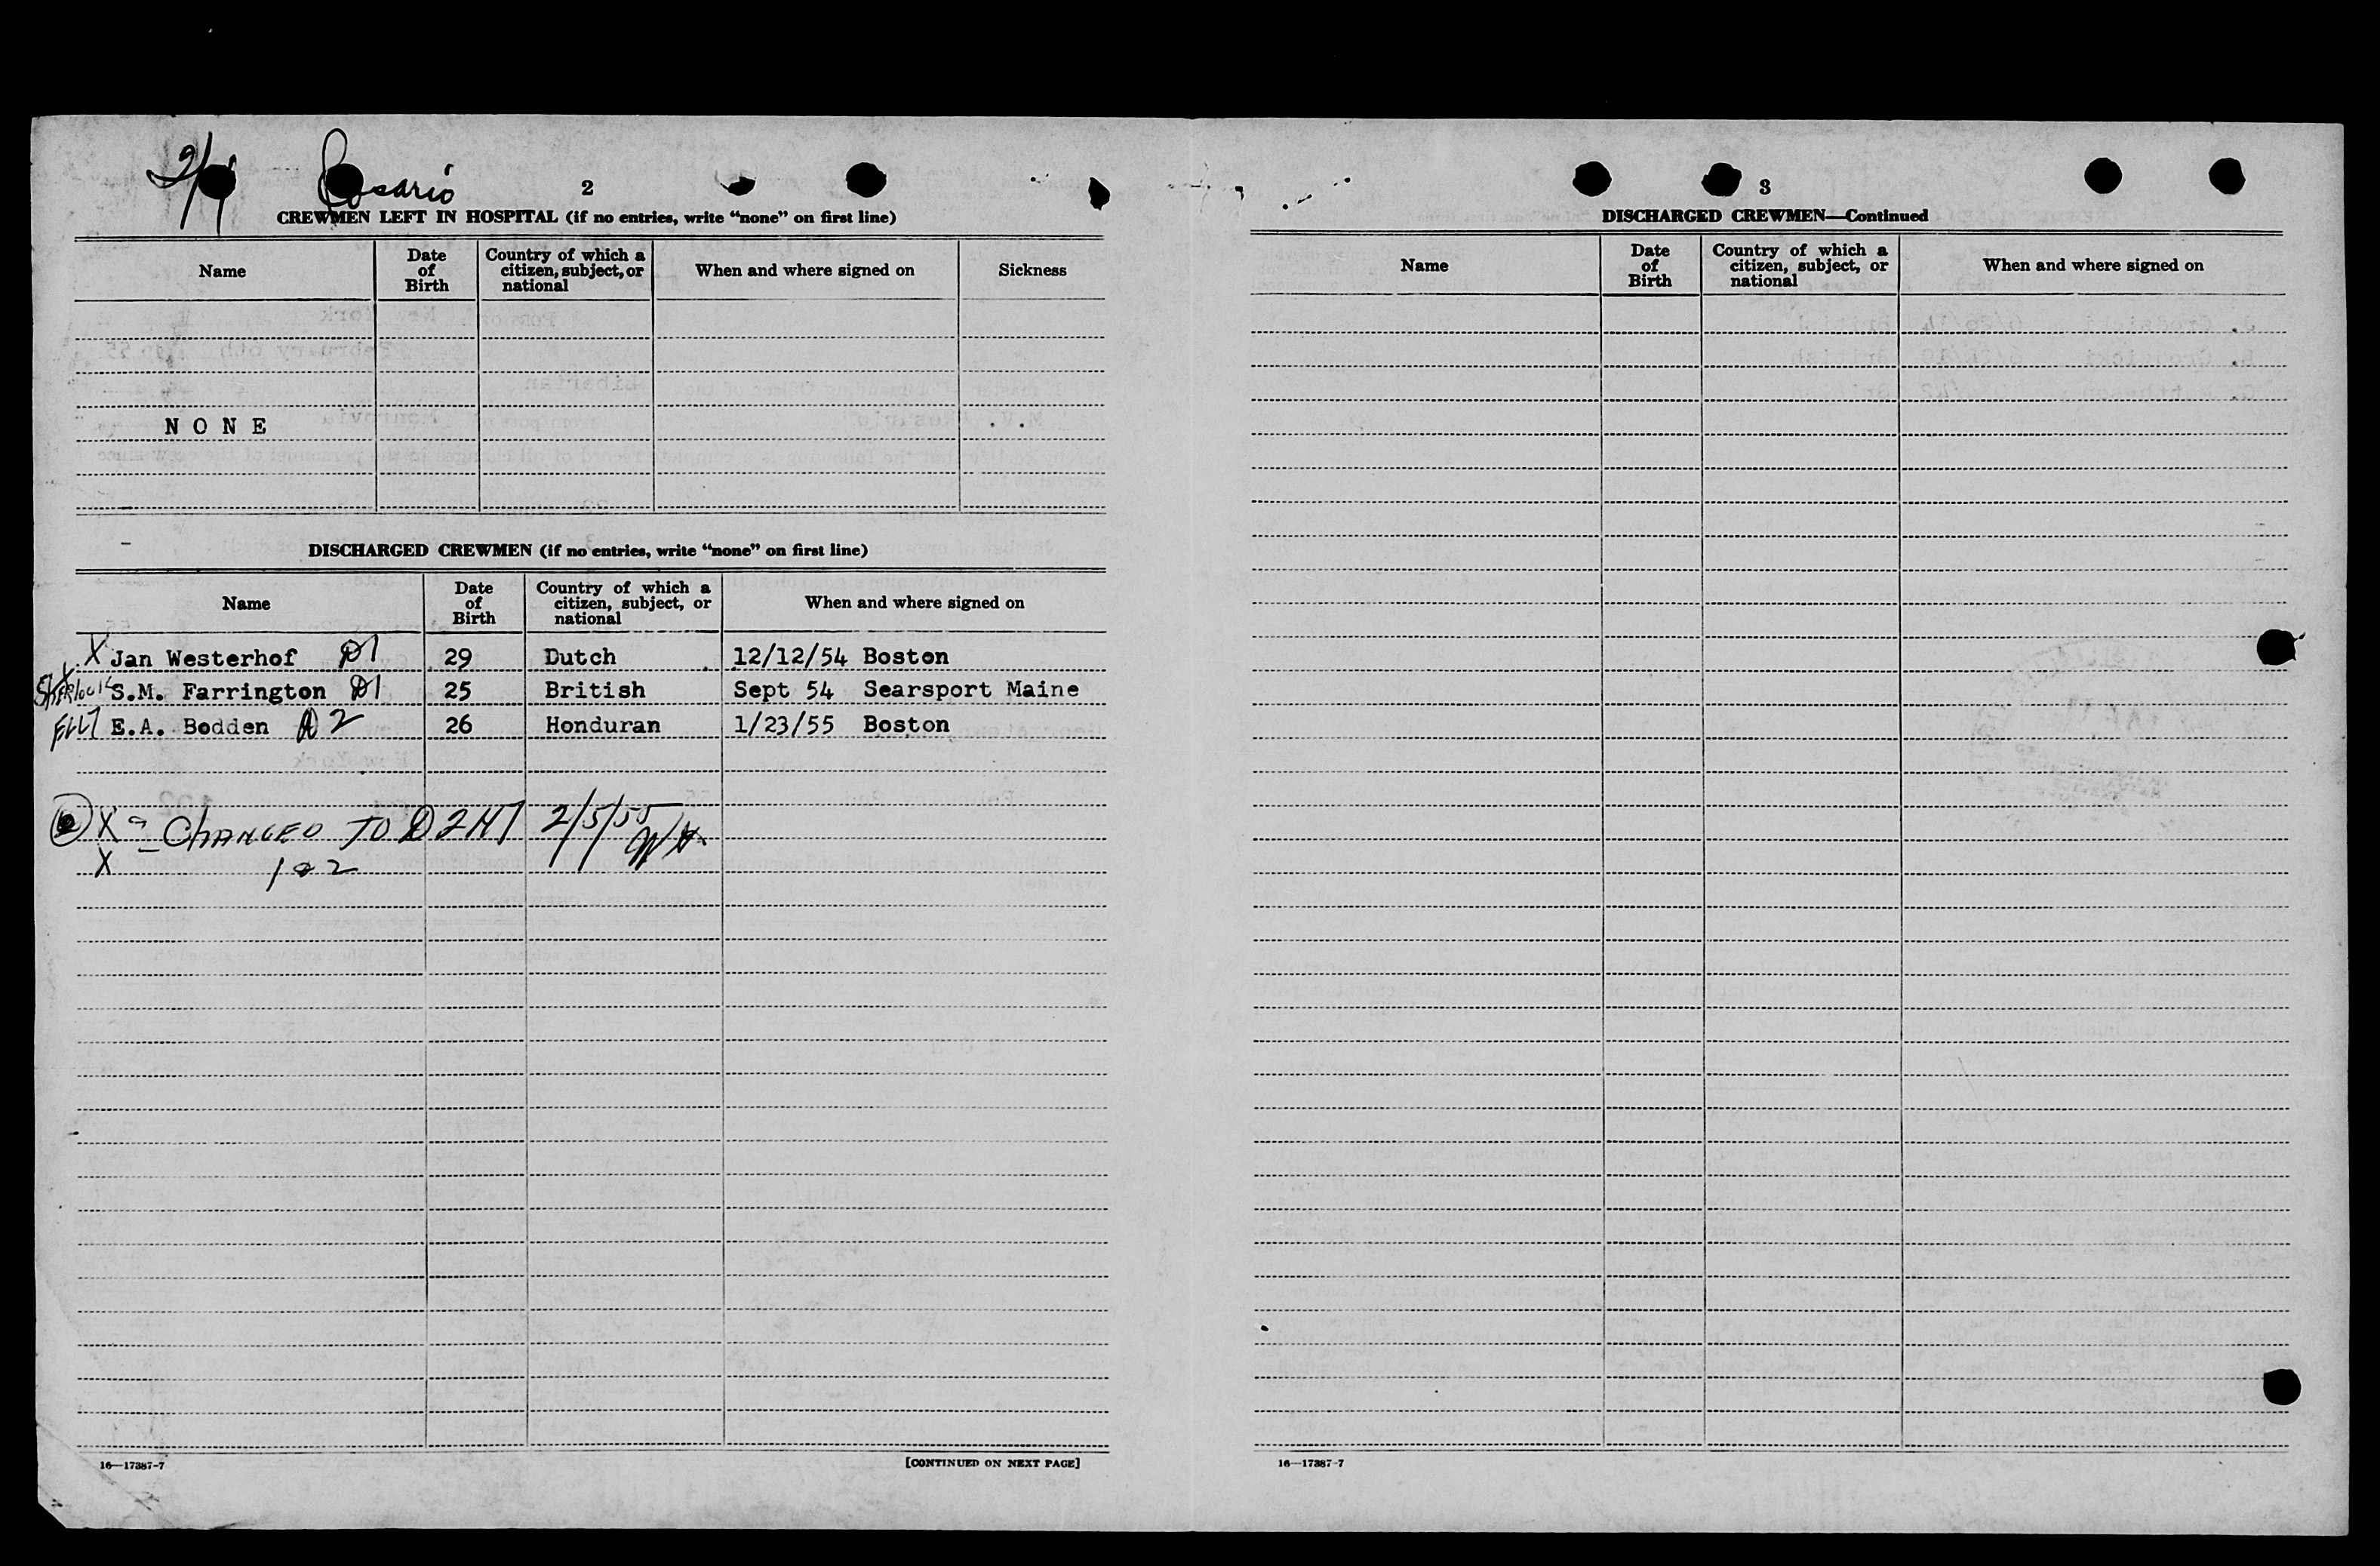 2/1 Rosario
2
CREWMEN LEFT IN HOSPITAL (if no entries, write “none” on first line)
Name
Date of Birth
Country of which a citizen, subject, or national
When and where signed on
Sickness
NONE
DISCHARGED CREWMEN (if no entries, write “none” on first line)
Name
Date of Birth
Country of which a citizen, subject, or national
When and where signed on
X Jan Westerhof D1 29 Dutch 12/12/54 Boston
X SHERlock S.M. Farrington D1 25 British Sept 54 Searsport Maine
E.A. Bodden D2 26 Honduran 1/23/55 Boston
X = CHANGED TO D2 2/5/55
X 1 2
16—17387-7
[CONTINUED ON NEXT PAGE]
3
DISCHARGED CREWMEN—Continued
Name
Date of Birth
Country of which a citizen, subject, or national
When and where signed on
16—17387-7